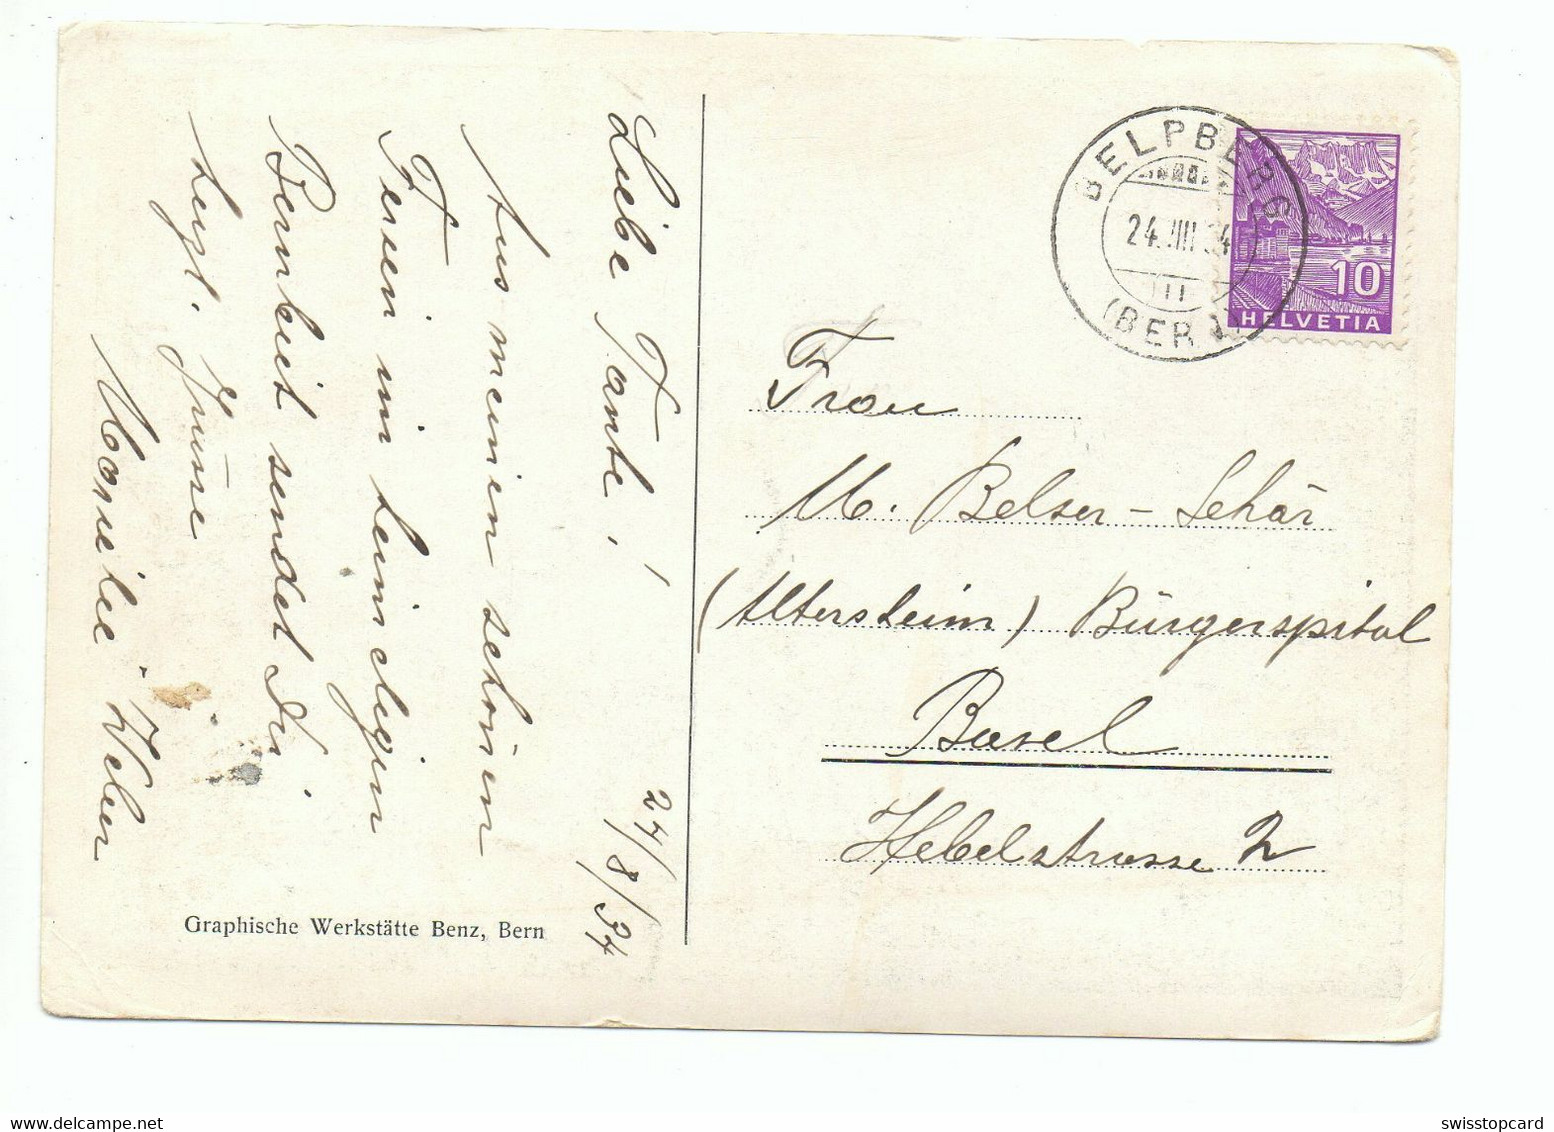 Liebe Tante, !
24/8/34
Aus meinen schönen
Ferien im heimeligen
Bernbiet sendet Dir
herzl. Grüsse
Weber
Graphische Werkstätte Benz, Bern
BELPBERG
24. VIII. 34
(BERN)
10
HELVETIA
Frau
M. Belser-Schär
(Altersheim) Bürgerspital
Basel
Hebelstrasse 2
swisstopcard